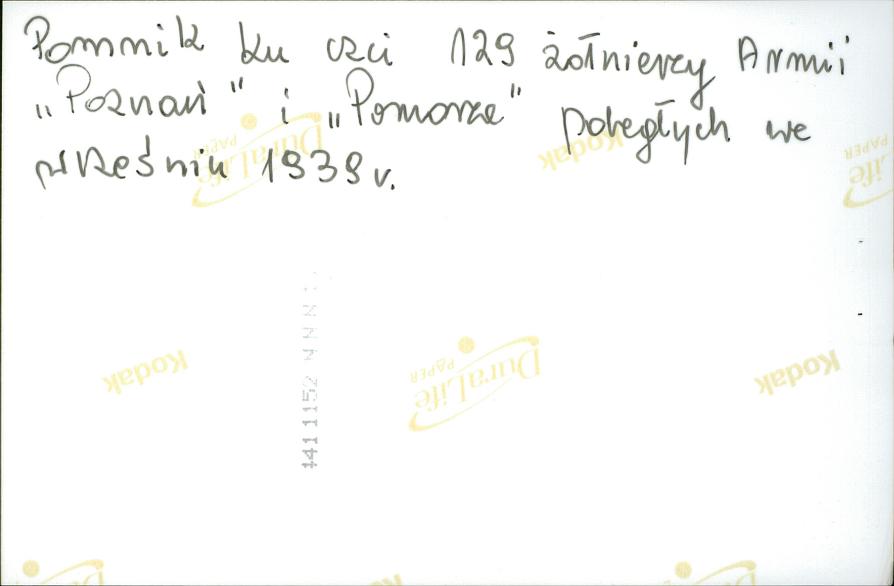 Pomnik ku czci 129 żołnierzy Armii
„Poznań" i „Pomorze" poległych we
wrześniu 1939 r.
DuraLife
PAPER
Kodak
DuraLife
PAPER
Kodak
DuraLife
PAPER
Kodak